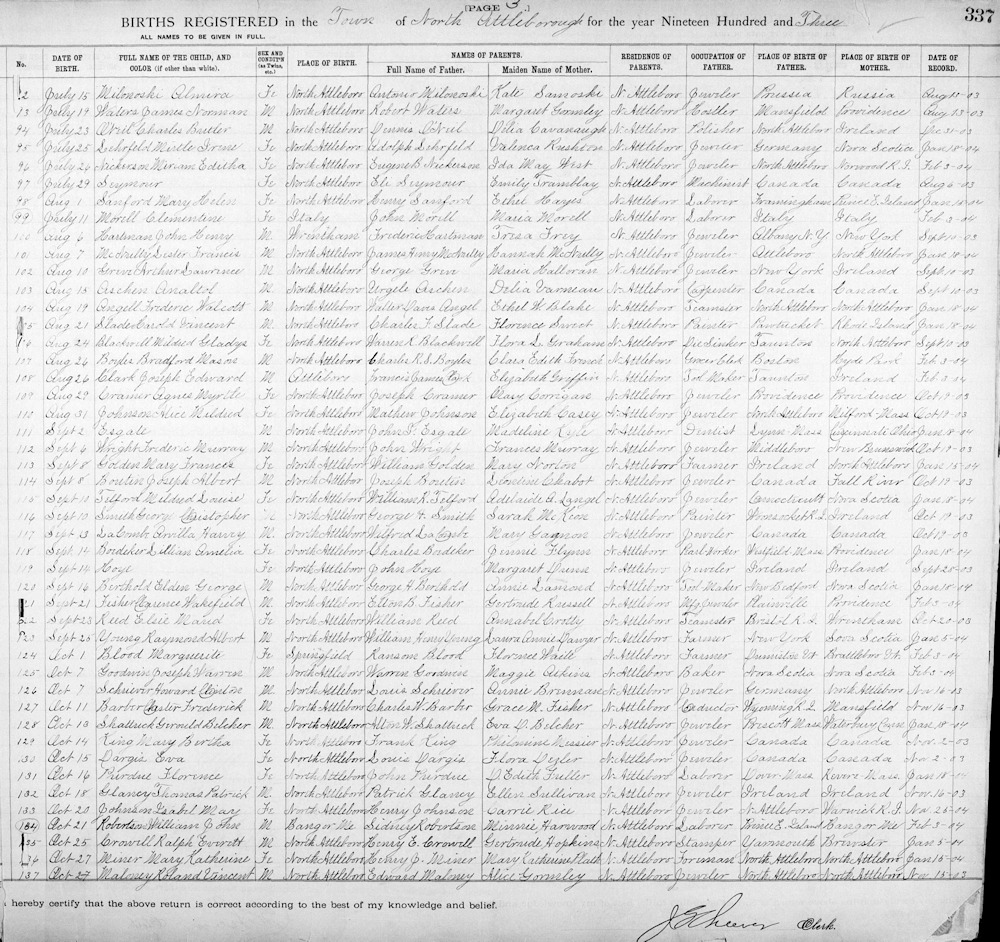 [PAGE 3.]
337
BIRTHS REGISTERED in the Town of North Attleborough for the year Nineteen Hundred and Three
ALL NAMES TO BE GIVEN IN FULL.
No. DATE OF BIRTH. FULL NAME OF THE CHILD, AND COLOR (if other than white). SEX AND CONDIT'N (as Twins, etc.) PLACE OF BIRTH. NAMES OF PARENTS. Full Name of Father. Maiden Name of Mother. RESIDENCE OF PARENTS. OCCUPATION OF FATHER. PLACE OF BIRTH OF FATHER. PLACE OF BIRTH OF MOTHER. DATE OF RECORD.
2 July 15 Milonoski Almira Fe North Attleboro Antoner Milonoski Kate Samoski N. Attleboro Jeweler Russia Russia Aug 15-03
13 July 19 Waters James Norman M North Attleboro Robert Waters Margaret Gormley N. Attleboro Hostler Mansfield Providence Aug 13-03
94 July 23 O'Neil Charles Butler M North Attleboro Dennis O'Neil Delia Cavanaugh N. Attleboro Polisher North Attleboro Ireland Dec 31-03
95 July 25 Lehrfeld Mirtle Irene Fe North Attleboro Adolph Lehrfeld N. Attleboro Jeweler Germany Nova Scotia Jan 18-04
96 July 26 Nickerson Miriam Editha Fe North Attleboro Eugene B. Nickerson Ida May West N. Attleboro Jeweler North Attleboro Norwood R.I. Feb 3-04
97 July 29 Seymour Fe North Attleboro Eli Seymour Emily Tramblay N. Attleboro Machinist Canada Canada Aug 6-03
98 Aug 1 Sanford Mary Helen Fe North Attleboro Henry Sanford Ethel Hayes N. Attleboro Laborer Framingham Prince E. Island Jan 18-04
99 July 11 Morell Clementine Fe Italy John Morell Maria Morell N. Attleboro Laborer Italy Italy Feb 3-04
100 Aug 6 Hartman John Henry M Wrentham Frederic Hartman Tresa Frey N. Attleboro Jeweler Albany N.Y. New York Sept 10-03
101 Aug 7 McNulty Lester Francis M North Attleboro James Henry McNulty Hannah McNulty N. Attleboro Jeweler Attleboro North Attleboro Jan 18-04
102 Aug 10 Greve Arthur Lawrence M North Attleboro George Greve Maria Halloran N. Attleboro Jeweler New York Ireland Sept 10-03
103 Aug 15 Aschen Anatol M North Attleboro Urgele Aschen Delia Varneau N. Attleboro Carpenter Canada Canada Sept 10-03
104 Aug 19 Angell Frederic Walcott M North Attleboro Walter Davis Angel Ethel W. Blake N. Attleboro Teamster North Attleboro North Attleboro Jan 18-04
05 Aug 21 Slade Harold Vincent M North Attleboro Charles F. Slade Florence Sweet N. Attleboro Painter Pawtucket Rhode Island Jan 18-04
06 Aug 24 Blackwell Mildred Gladys Fe North Attleboro Warren K. Blackwell Flora L. Graham N. Attleboro Die Sinker Taunton North Attleboro Sept 10-03
107 Aug 26 Boyles Bradford Mason M North Attleboro Charles R.S. Boyles Clara Edith French N. Attleboro Grocer Clerk Boston Hyde Park Feb 3-04
108 Aug 26 Clark Joseph Edward M Attleboro Francis James Clark Elizabeth Griffin N. Attleboro Tool Maker Taunton Ireland Feb 3-04
109 Aug 29 Cramer Agnes Myrtle Fe North Attleboro Joseph Cramer Mary Corrigan N. Attleboro Jeweler Providence Providence Oct 19-03
110 Aug 31 Johnson Alice Mildred Fe North Attleboro Mathew Johnson Elizabeth Casey N. Attleboro Jeweler North Attleboro Milford Mass Oct 19-03
111 Sept 2 Esgate M North Attleboro John T. Esgate Madeline Kyle N. Attleboro Dentist Lynn Mass Cincinnati Ohio Jan 18-04
112 Sept 6 Wright Frederic Murray M North Attleboro John Wright Frances Murray N. Attleboro Jeweler Middleboro New Brunswick Oct 19-03
113 Sept 8 Golden Mary Frances Fe North Attleboro William Golden Mary Norton N. Attleboro Farmer Ireland North Attleboro Jan 15-04
114 Sept 8 Boutin Joseph Albert M North Attleboro Joseph Boutin Leontine Chabot N. Attleboro Jeweler Canada Fall River Oct 19-03
115 Sept 10 Telford Mildred Louise Fe North Attleboro William R. Telford Adelaide A. Langel N. Attleboro Jeweler Connecticutt Nova Scotia Jan 18-04
116 Sept 10 Smith George Christopher M North Attleboro George H. Smith Sarah McKeon N. Attleboro Painter Woonsocket R.I. Ireland Oct 19-03
117 Sept 13 LaComb Orvilla Harvey M North Attleboro Wilfred LaComb Mary Gagnon N. Attleboro Jeweler Canada Canada Oct 19-03
118 Sept 14 Bodeker Lillian Amelia Fe North Attleboro Charles Bodeker Jennie Flynn N. Attleboro Pearl Worker Westfield Mass Providence Jan 18-04
119 Sept 14 Hoye Fe North Attleboro John Hoye Margaret Dunn N. Attleboro Jeweler Ireland Ireland Sept 25-03
120 Sept 16 Berthold Elden George M North Attleboro George A. Berthold Annie Lamond N. Attleboro Tool Maker New Bedford Nova Scotia Jan 18-04
121 Sept 21 Fisher Clarence Wakefield M North Attleboro Elton B. Fisher Gertrude Russell N. Attleboro Mfg Jeweler Plainville Providence Feb 3-04
122 Sept 23 Reed Elsie Maud Fe North Attleboro William Reed Annabel Crotty N. Attleboro Teamster Bristol R.I. Wrentham Oct 20-03
123 Sept 25 Young Raymond Albert M North Attleboro William Henry Young Laura Annie Sawyer N. Attleboro Farmer New York Nova Scotia Jan 5-04
124 Oct 1 Blood Marguerite Fe Springfield Ransom Blood Florence Waite N. Attleboro Farmer Dummerston Vt Brattleboro Vt. Feb 3-04
125 Oct 7 Goodwin Joseph Warren M North Attleboro Warren Goodwin Maggie Atkins N. Attleboro Baker Nova Scotia Nova Scotia Feb 3-04
126 Oct 7 Schriever Howard Clayton M North Attleboro Louis Schriever Annie Brennan N. Attleboro Jeweler Germany North Attleboro Nov 16-03
127 Oct 11 Barber Chester Frederick M North Attleboro Charles W. Barber Grace M. Fisher N. Attleboro Conductor Wyoming R.I. Mansfield Nov 16-03
128 Oct 13 Shattuck Gerould Belcher M North Attleboro Alton W. Shattuck Eva D. Belcher N. Attleboro Jeweler Prescott Mass Waterbury Conn Jan 18-04
129 Oct 14 King Mary Bertha Fe North Attleboro Frank King Philomine Messier N. Attleboro Jeweler Canada Canada Nov. 2-03
130 Oct 15 Dargis Eva Fe North Attleboro Louis Dargis Flora N. Attleboro Jeweler Canada Canada Nov 2-03
131 Oct 16 Purdue Florence Fe North Attleboro John Purdue D. Edith Fuller N. Attleboro Laborer Dover Mass Revere Mass Jan 18-04
132 Oct 18 Glaney Thomas Patrick M North Attleboro Patrick Glaney Ellen Sullivan N. Attleboro Jeweler Ireland Ireland Nov. 16-03
133 Oct 20 Johnson Isabel May Fe North Attleboro Henry Johnson Carrie Rice N. Attleboro Jeweler N. Attleboro Warwick R.I. Nov. 25-04
134 Oct 21 Robertson William John M Bangor Me Sidney Robertson Minnie Harwood N. Attleboro Laborer Prince E. Island Bangor Me Feb 3-04
135 Oct 25 Crowell Ralph Everett M North Attleboro Henry E. Crowell Gertrude Hopkins N. Attleboro Stamper Yarmouth Brewster Jan 5-04
136 Oct 27 Miner Mary Katherine Fe North Attleboro Henry J. Miner Mary Catherine Platt N. Attleboro Foreman North Attleboro North Attleboro Jan 15-04
137 Oct 27 Maloney Roland Vincent M North Attleboro Edward Maloney Alice Gormley N. Attleboro Jeweler North Attleboro North Attleboro Nov. 15-03
hereby certify that the above return is correct according to the best of my knowledge and belief.
Clerk.